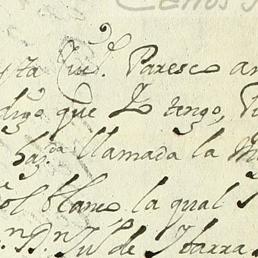 yta Ciu.d Paresco an
digo que Yo tengo, 
haz.da llamada la
ol blanco la qual
D.n Ju.o de Ibarra